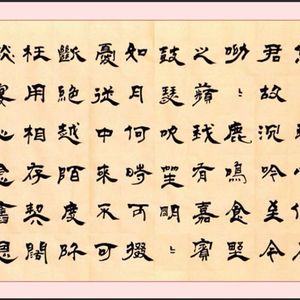 君故沉吟至今
呦〻鹿鳴食野
之蘋我有嘉賓
鼓瑟吹笙明〻
如月何時可掇
憂從中來不可
斷絕越陌度阡
枉用相存契闊
談宴心念舊恩